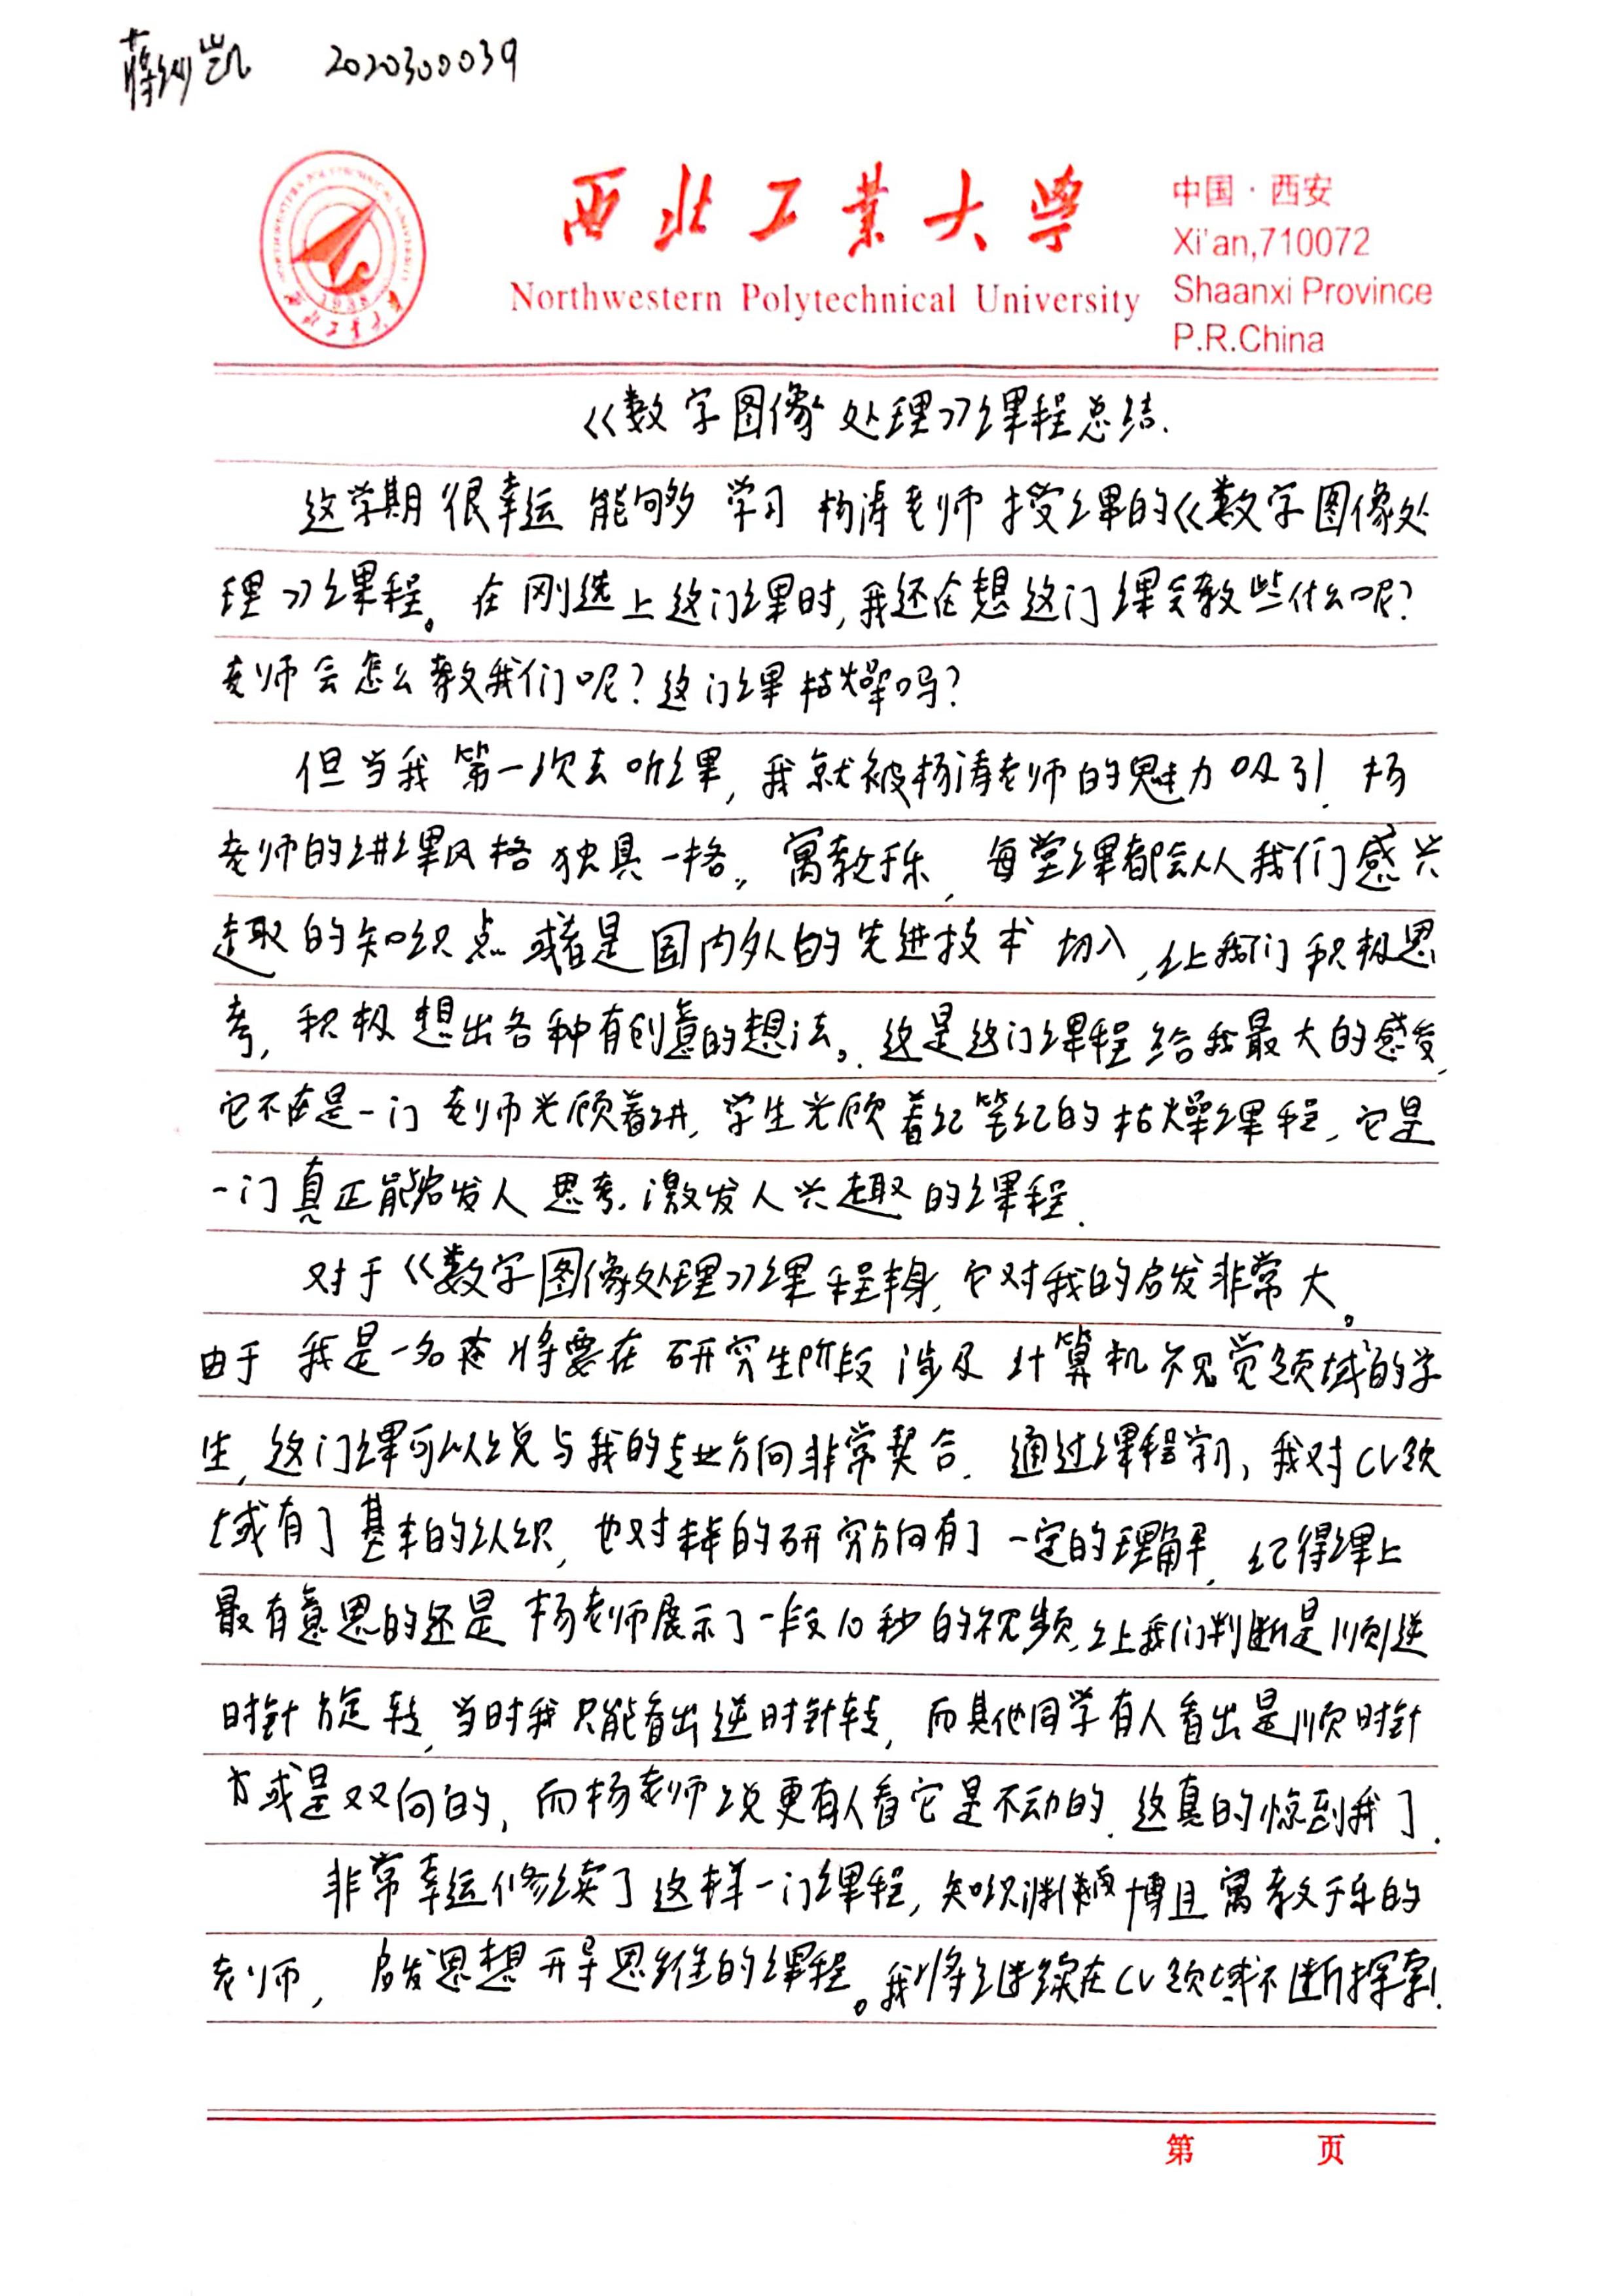 蒋纱凯 2020300039
西北工业大学
Northwestern Polytechnical University
中国·西安
Xi'an,710072
Shaanxi Province
P.R.China
《数字图像处理》课程总结.
这学期很幸运能够学习杨涛老师授课的《数字图像处
理》课程。在刚选上这门课时,我还在想这门课会教些什么呢?
老师会怎么教我们呢?这门课枯燥吗?
但当我第一次去听课,我就被杨涛老师的魅力吸引.杨
老师的讲课风格独具一格。寓教于乐,每堂课都会从我们感兴
趣的知识点或者是国内外的先进技术切入,让我们积极思
考,积极想出各种有创意的想法。这是这门课程给我最大的感受,
它不在是一门老师光顾着讲,学生光顾着记笔记的枯燥课程,它是
一门真正能启发人思考.激发人兴趣的课程.
对于《数字图像处理》课程本身,它对我的启发非常大。
由于我是一名将要在研究生阶段涉及计算机视觉领域的学
生,这门课可以说与我的专业方向非常契合.通过课程学习,我对CV领
域有了基本的认识,也对未来的研究方向有了一定的理解,记得课上
最有意思的还是杨老师展示了一段10秒的视频,让我们判断是顺逆
时针旋转,当时我只能看出逆时针转,而其他同学有人看出是顺时针
或是双向的,而杨老师说更有人看它是不动的.这真的惊到我了.
非常幸运修读了这样一门课程,知识渊博且寓教于乐的
老师,启发思想开导思维的课程。我将继续在CV领域不断探索!
第 页